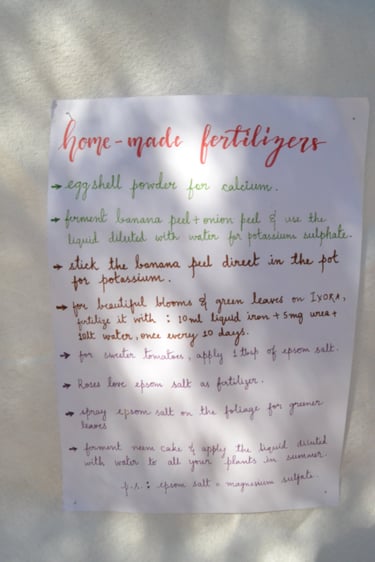 home-made fertilizers
→ egg shell powder for calcium.
→ ferment banana peel + onion peel & use the
liquid diluted with water for potassium sulphate.
→ stick the banana peel direct in the pot
for potassium.
→ for beautiful blooms & green leaves on IXORA,
fertilize it with : 10ml liquid iron + 5mg urea +
10lt water, once every 10 days.
→ for sweeter tomatoes, apply 1 tbsp of epsom salt.
→ Roses love epsom salt as fertilizer.
→ spray epsom salt on the foliage for greener
leaves
→ ferment neem cake & apply the liquid diluted
with water to all your plants in summer.
p.s. : epsom salt = magnesium sulfate.